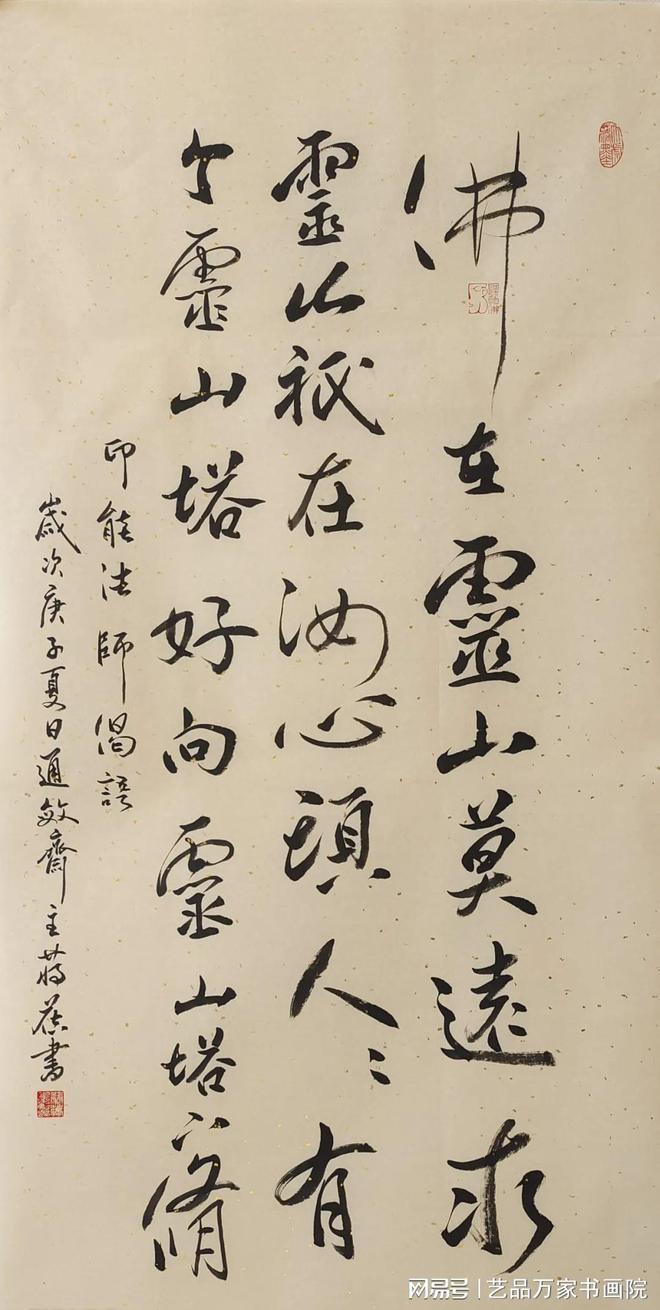 佛在靈山莫遠求
靈山祇在汝心頭人〻有
个靈山塔好向靈山塔下脩
印能法師偈語
歲次庚子夏日通敏齋主蔣葆書
网易号 | 艺品万家书画院